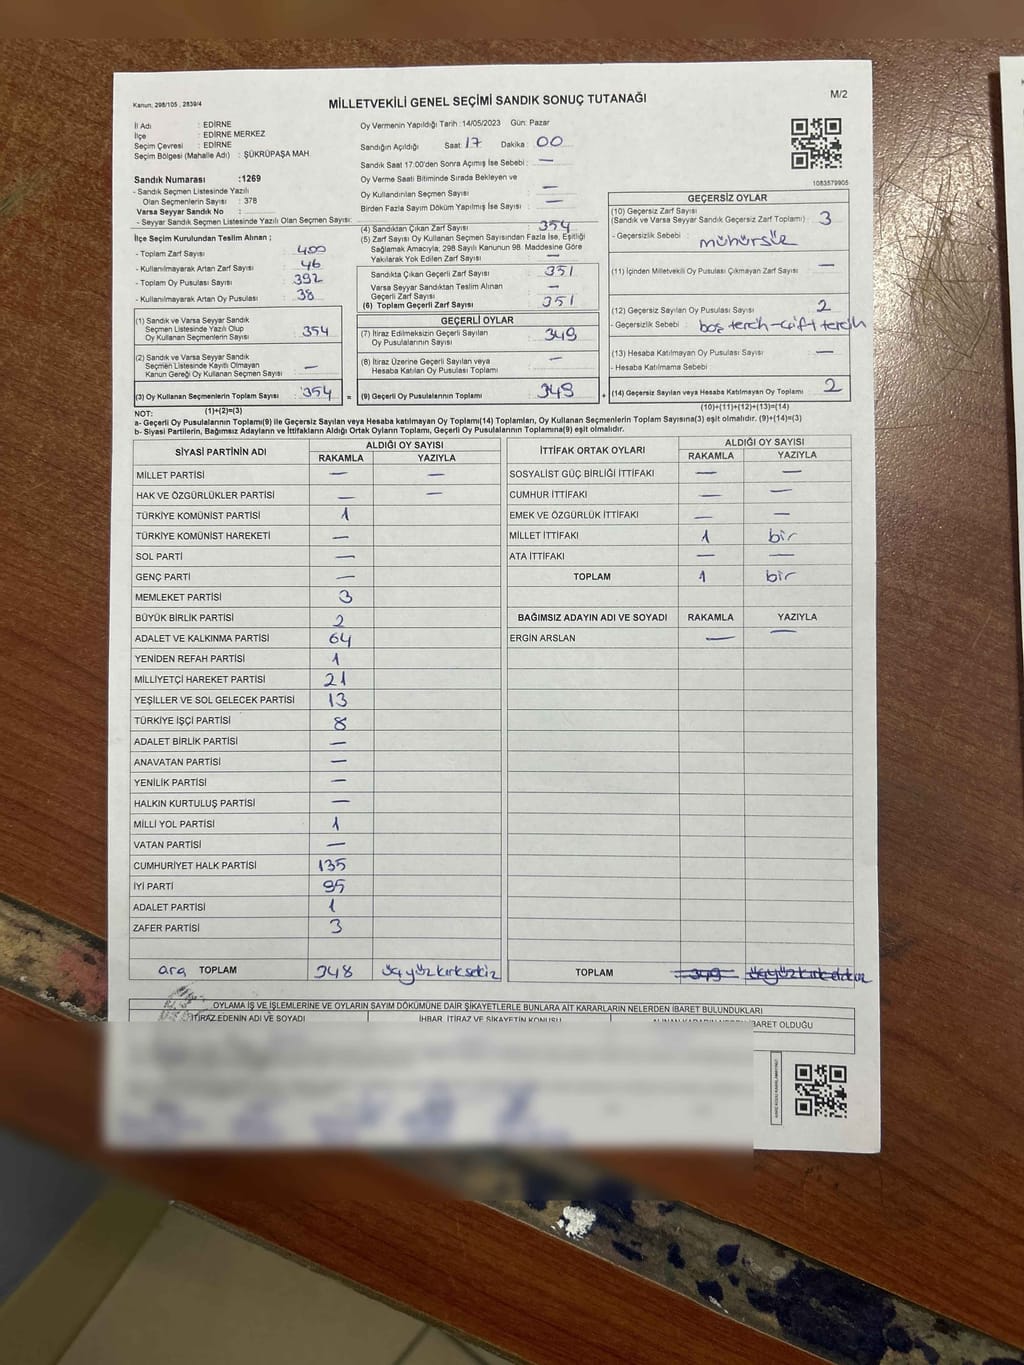 Kanun; 298/105 , 2839/4
MİLLETVEKİLİ GENEL SEÇİMİ SANDIK SONUÇ TUTANAĞI
M/2
İl Adı : EDİRNE
İlçe : EDİRNE MERKEZ
Seçim Çevresi : EDİRNE
Seçim Bölgesi (Mahalle Adı) : ŞÜKRÜPAŞA MAH.
Sandık Numarası :1269
- Sandık Seçmen Listesinde Yazılı
Olan Seçmenlerin Sayısı : 378
Varsa Seyyar Sandık No :
- Seyyar Sandık Seçmen Listesinde Yazılı Olan Seçmen Sayısı:
Oy Vermenin Yapıldığı Tarih : 14/05/2023 Gün: Pazar
Sandığın Açıldığı Saat : 17 Dakika : 00
Sandık Saat 17:00'den Sonra Açımış İse Sebebi : —
Oy Verme Saati Bitiminde Sırada Bekleyen ve
Oy Kullandırılan Seçmen Sayısı : —
Birden Fazla Sayım Döküm Yapılmış İse Sayısı : —
1083579905
İlçe Seçim Kurulundan Teslim Alınan ;
- Toplam Zarf Sayısı : 400
- Kullanılmayarak Artan Zarf Sayısı : 46
- Toplam Oy Pusulası Sayısı : 392
- Kullanılmayarak Artan Oy Pusulası : 38
(1) Sandık ve Varsa Seyyar Sandık
Seçmen Listesinde Yazılı Olup
Oy Kullanan Seçmenlerin Sayısı : 354
(2) Sandık ve Varsa Seyyar Sandık
Seçmen Listesinde Kayıtlı Olmayan
Kanun Gereği Oy Kullanan Seçmen Sayısı : —
(3) Oy Kullanan Seçmenlerin Toplam Sayısı : 354 =
(1)+(2)=(3)
(4) Sandıktan Çıkan Zarf Sayısı : 354
(5) Zarf Sayısı Oy Kullanan Seçmen Sayısından Fazla İse, Eşitliği
Sağlamak Amacıyla; 298 Sayılı Kanunun 98. Maddesine Göre
Yakılarak Yok Edilen Zarf Sayısı : —
Sandıkta Çıkan Geçerli Zarf Sayısı : 351
Varsa Seyyar Sandıktan Teslim Alınan
Geçerli Zarf Sayısı : —
(6) Toplam Geçerli Zarf Sayısı : 351
GEÇERLİ OYLAR
(7) İtiraz Edilmeksizin Geçerli Sayılan
Oy Pusulalarının Sayısı : 349
(8) İtiraz Üzerine Geçerli Sayılan veya
Hesaba Katılan Oy Pusulası Toplamı : —
(9) Geçerli Oy Pusulalarının Toplamı : 349 +
GEÇERSİZ OYLAR
(10) Geçersiz Zarf Sayısı
(Sandık ve Varsa Seyyar Sandık Geçersiz Zarf Toplamı) : 3
- Geçersizlik Sebebi : mühürsüz
(11) İçinden Milletvekili Oy Pusulası Çıkmayan Zarf Sayısı : —
(12) Geçersiz Sayılan Oy Pusulası Sayısı : 2
- Geçersizlik Sebebi : boş tercih-çift tercih
(13) Hesaba Katılmayan Oy Pusulası Sayısı : —
- Hesaba Katılmama Sebebi
(14) Geçersiz Sayılan veya Hesaba Katılmayan Oy Toplamı : 2
(10)+(11)+(12)+(13)=(14)
NOT:
a- Geçerli Oy Pusulalarının Toplamı(9) ile Geçersiz Sayılan veya Hesaba katılmayan Oy Toplamı(14) Toplamları, Oy Kullanan Seçmenlerin Toplam Sayısına(3) eşit olmalıdır. (9)+(14)=(3)
b- Siyasi Partilerin, Bağımsız Adayların ve İttifakların Aldığı Ortak Oyların Toplamı, Geçerli Oy Pusulalarının Toplamına(9) eşit olmalıdır.
SİYASİ PARTİNİN ADI ALDIĞI OY SAYISI
RAKAMLA YAZIYLA
MİLLET PARTİSİ — —
HAK VE ÖZGÜRLÜKLER PARTİSİ — —
TÜRKİYE KOMÜNİST PARTİSİ 1
TÜRKİYE KOMÜNİST HAREKETİ —
SOL PARTİ —
GENÇ PARTİ —
MEMLEKET PARTİSİ 3
BÜYÜK BİRLİK PARTİSİ 2
ADALET VE KALKINMA PARTİSİ 64
YENİDEN REFAH PARTİSİ 1
MİLLİYETÇİ HAREKET PARTİSİ 21
YEŞİLLER VE SOL GELECEK PARTİSİ 13
TÜRKİYE İŞÇİ PARTİSİ 8
ADALET BİRLİK PARTİSİ —
ANAVATAN PARTİSİ —
YENİLİK PARTİSİ —
HALKIN KURTULUŞ PARTİSİ —
MİLLİ YOL PARTİSİ 1
VATAN PARTİSİ —
CUMHURİYET HALK PARTİSİ 135
İYİ PARTİ 95
ADALET PARTİSİ 1
ZAFER PARTİSİ 3
ara TOPLAM 348 üçyüzkırksekiz
İTTİFAK ORTAK OYLARI ALDIĞI OY SAYISI
RAKAMLA YAZIYLA
SOSYALİST GÜÇ BİRLİĞİ İTTİFAKI — —
CUMHUR İTTİFAKI — —
EMEK VE ÖZGÜRLÜK İTTİFAKI — —
MİLLET İTTİFAKI 1 bir
ATA İTTİFAKI — —
TOPLAM 1 bir
BAĞIMSIZ ADAYIN ADI VE SOYADI RAKAMLA YAZIYLA
ERGİN ARSLAN — —
TOPLAM 349
OYLAMA İŞ VE İŞLEMLERİNE VE OYLARIN SAYIM DÖKÜMÜNE DAİR ŞİKAYETLERLE BUNLARA AİT KARARLARIN NELERDEN İBARET BULUNDUKLARI
İTİRAZ EDENİN ADI VE SOYADI İHBAR, İTİRAZ VE ŞİKAYETİN KONUSU